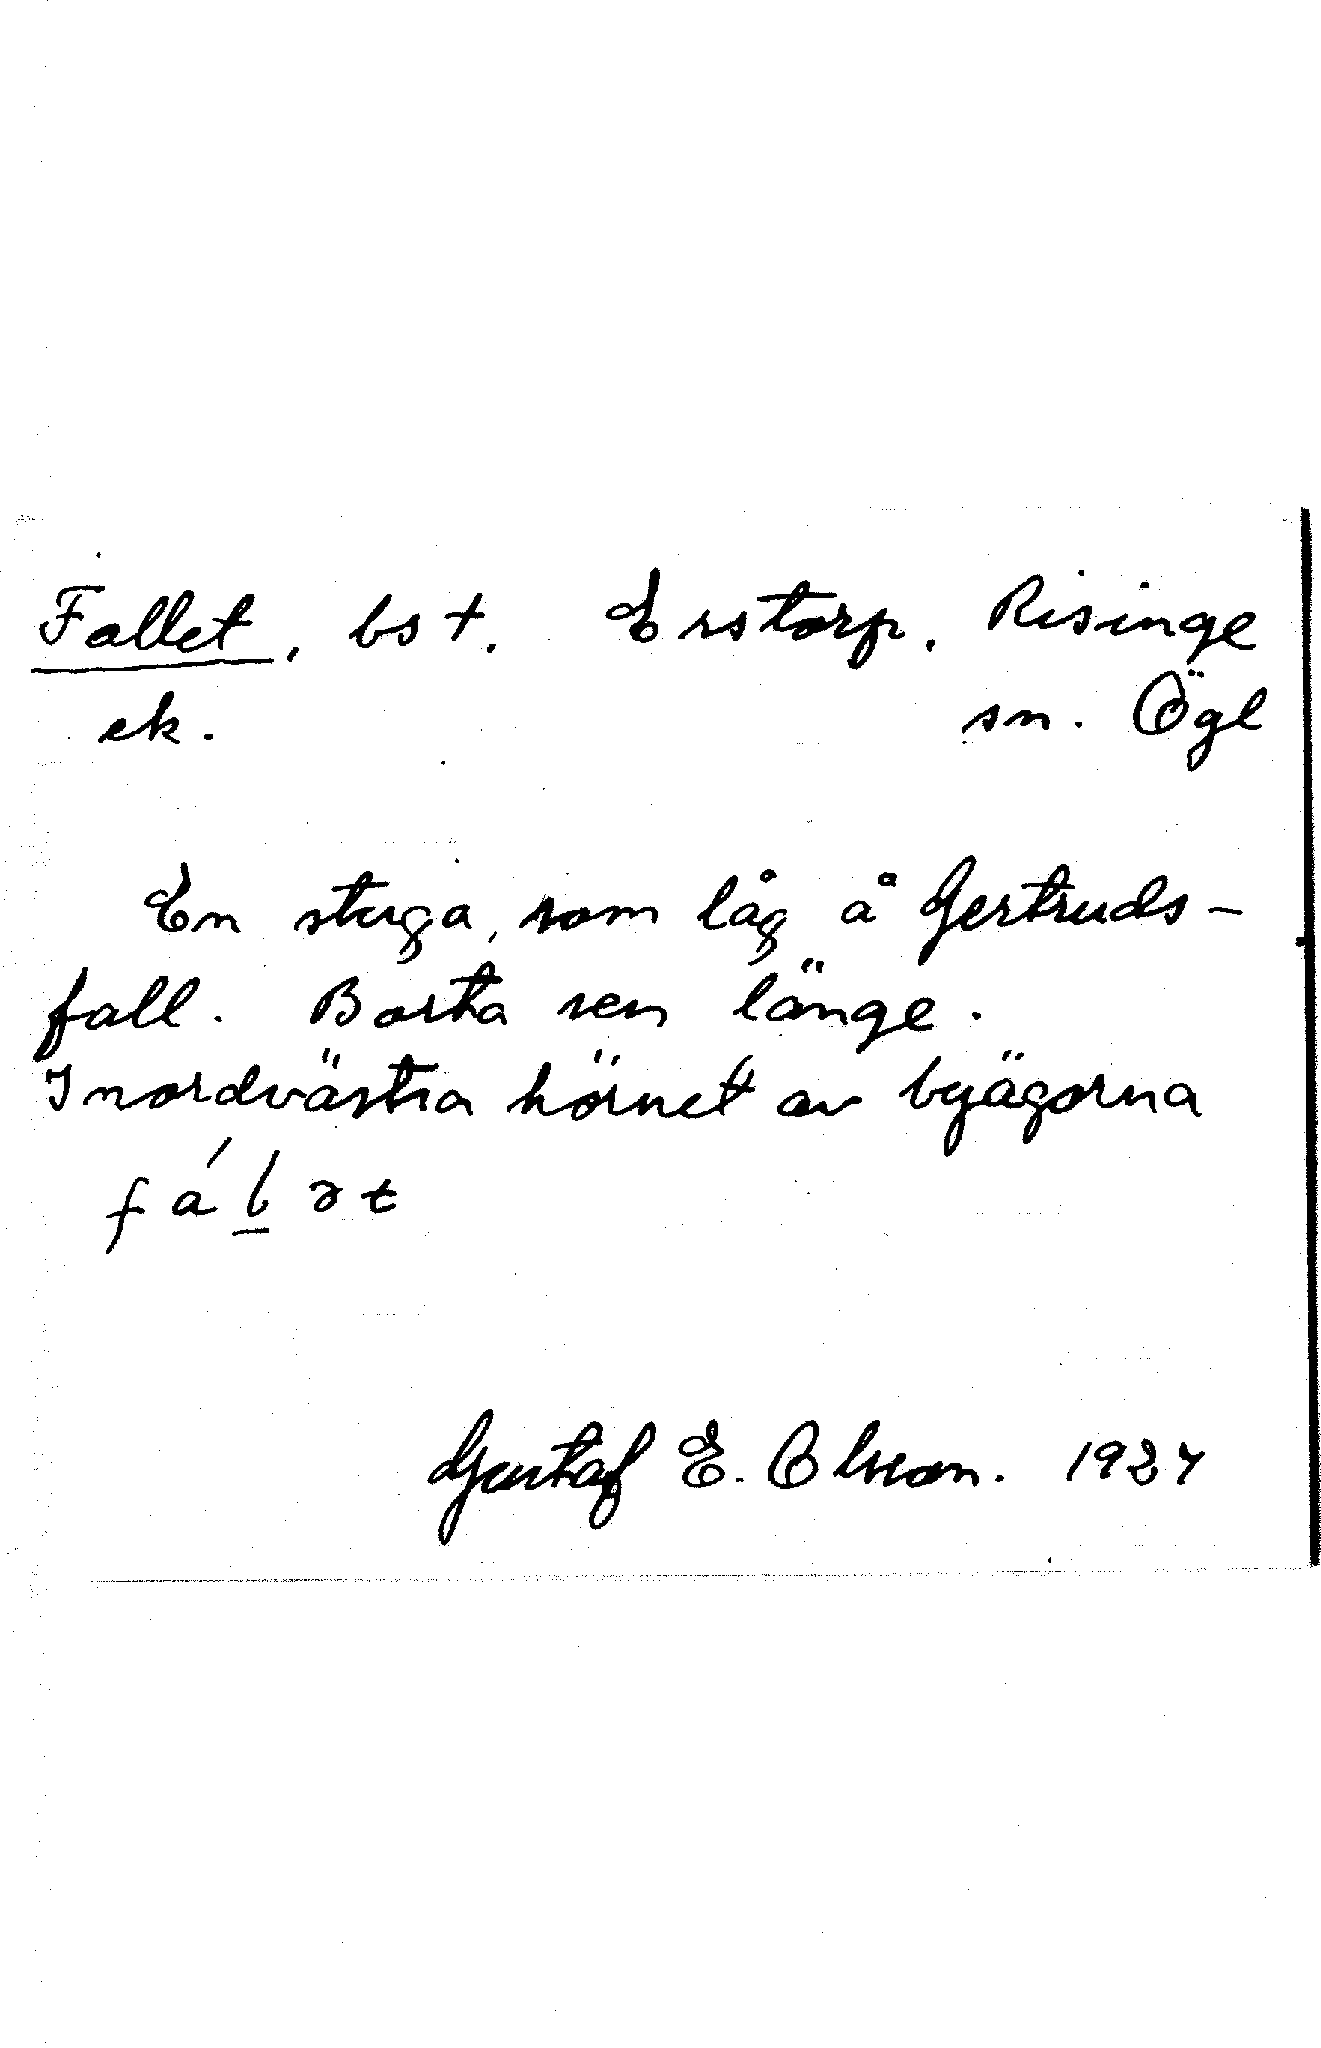 Fallet, bst. Erstorp. Risinge
ek. sn. Ögl
En stuga, som låg å Gertruds-
fall. Borta sen länge.
I nordvästra hörnet av byägorna
fál̲ət
Gustaf E. Olsson. 1927